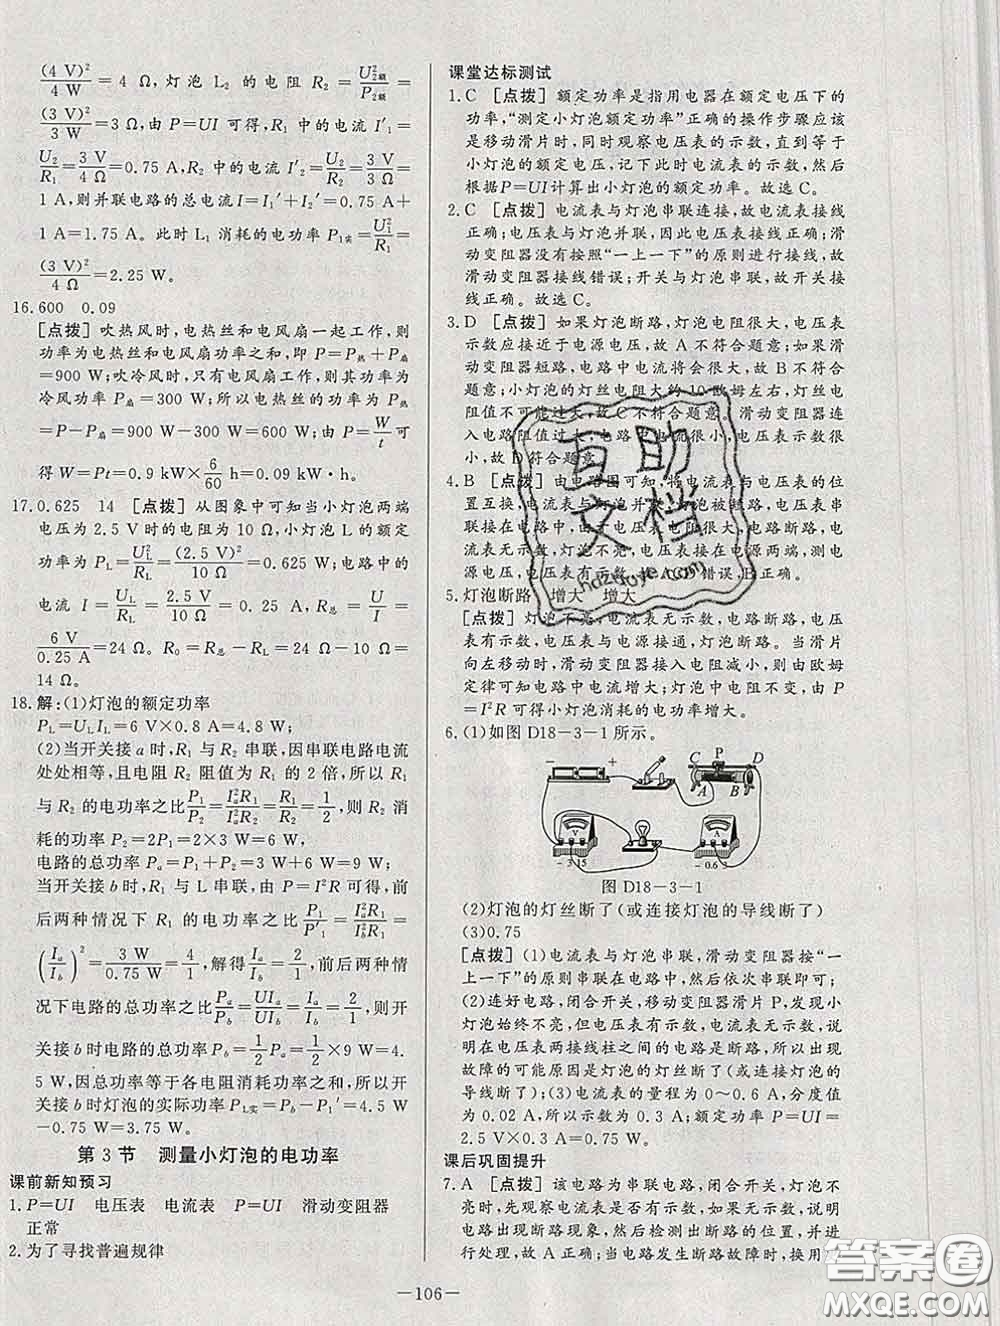 (4 V)²/4 W = 4 Ω,灯泡 L₂ 的电阻 R₂ = U₂额²/P₂额 =
(3 V)²/3 W = 3 Ω,由 P=UI 可得,R₁ 中的电流 I′₁ =
U₂/R₁ = 3 V/4 Ω = 0.75 A,R₂ 中的电流 I′₂ = U₂/R₂ = 3 V/3 Ω =
1 A,则并联电路的总电流 I=I₁′+I₂′=0.75 A+
1 A=1.75 A。此时 L₁ 消耗的电功率 P₁实 = U₂²/R₁ =
(3 V)²/4 Ω = 2.25 W。
16.600 0.09
[点拨] 吹热风时,电热丝和电风扇一起工作,则
功率为电热丝和电风扇功率之和,即 P=P热+P扇
=900 W;吹冷风时,只有电风扇工作,则其功率为
冷风功率 P扇=300 W;所以电热丝的功率为 P热
=P-P扇=900 W-300 W=600 W;由 P=W/t 可
得 W=Pt=0.9 kW×6/60 h=0.09 kW·h。
17.0.625 14 [点拨] 从图象中可知当小灯泡两端
电压为 2.5 V 时的电阻为 10 Ω,小灯泡 L 的额定
功率为 P_L=U_L²/R_L=(2.5 V)²/10 Ω=0.625 W;电路中的
电流 I = U_L/R_L = 2.5 V/10 Ω = 0.25 A,R总 = U/I =
6 V/0.25 A=24 Ω。R₀=R总-R_L=24 Ω-10 Ω=
14 Ω。
18.解:(1)灯泡的额定功率
P_L=U_L I_L=6 V×0.8 A=4.8 W;
(2)当开关接 a 时,R₁ 与 R₂ 串联,因串联电路电流
处处相等,且电阻 R₂ 阻值为 R₁ 的 2 倍,所以 R₁
与 R₂ 的电功率之比P₁/P₂=Iₐ²R₁/Iₐ²R₂=R₁/R₂=1/2,则 R₂ 消
耗的功率 P₂=2P₁=2×3 W=6 W,
电路的总功率 Pₐ=P₁+P₂=3 W+6 W=9 W;
当开关接 b 时,R₁ 与 L 串联,由 P=I²R 可得,前
后两种情况下 R₁ 的电功率之比 P₁/P′₁ = Iₐ²R₁/I_b²R₁ =
(Iₐ/I_b)²=3 W/0.75 W=4/1,解得Iₐ/I_b=2/1,前后两种情
况下电路的总功率之比Pₐ/P_b=UIₐ/UI_b=Iₐ/I_b=2/1,则开
关接 b 时电路的总功率 P_b=1/2 Pₐ=1/2×9 W=4.
5 W,因总功率等于各电阻消耗功率之和,所以开
关接 b 时灯泡的实际功率 P_L实=P_b-P₁′=4.5 W
-0.75 W=3.75 W。
第 3 节 测量小灯泡的电功率
课前新知预习
1.P=UI 电压表 电流表 P=UI 滑动变阻器
正常
2.为了寻找普遍规律
课堂达标测试
1.C [点拨] 额定功率是指用电器在额定电压下的
功率,“测定小灯泡额定功率”正确的操作步骤应该
是移动滑片时,同时观察电压表的示数,直到等于
小灯泡的额定电压,记下此时电流表的示数,然后
根据 P=UI 计算出小灯泡的额定功率。故选 C。
2.C [点拨] 电流表与灯泡串联连接,故电流表接线
正确;电压表与灯泡并联,因此电压表接线正确;滑
动变阻器没有按照“一上一下”的原则进行接线,故
滑动变阻器接线错误;开关与灯泡串联,故开关接
线正确。故选 C。
3.D [点拨] 如果灯泡断路,灯泡电阻很大,电压表
示数应接近于电源电压,故 A 不符合题意;如果滑
动变阻器短路,电路中电流将会很大,故 B 不符合
题意;小灯泡的灯丝电阻大约 10 欧姆左右,灯丝
电阻值不可能过大,故 C 不符合题意。滑动变阻器连
入电路阻值过大,电路中电流很小,电压表示数很
小,故 D 符合题意。
4.B [点拨] 由电路图可知,将电流表与电压表的位
置互换,电流表与灯泡并联,电压表与滑动变阻器串
联接在电路中,电压表电阻很大,电路断路,电
流表无示数,灯泡不亮,电压表接近电源两端,测电
源电压,电压表有示数,故 A、C、D 错误,B 正确。
5.灯泡断路 增大 增大
[点拨] 灯泡不亮,电流表无示数,电路断路,电压
表有示数,电压表与电源接通,灯泡断路。当滑片
向左移动时,滑动变阻器接入电阻减小,则由欧姆
定律可知电路中电流增大;灯泡电阻不变,由 P
=I²R 可得小灯泡消耗的电功率增大。
6.(1)如图 D18-3-1 所示。
- +
C P D
A B
V
- 3 15
A
- 0.6 3
图 D18-3-1
(2)灯泡的灯丝断了(或连接灯泡的导线断了)
(3)0.75
[点拨] (1)电流表与灯泡串联,滑动变阻器按“一
上一下”的原则串联在电路中,然后依次串联即可;
(2)连好电路,闭合开关,移动变阻器滑片 P,发现小
灯泡始终不亮,但电压表有示数,电流表无示数,说
明电压表两接线柱之间的电路是断路,所以出现
故障的可能原因是灯泡的灯丝断了(或连接灯泡的
导线断了);(3)电流表的量程为 0～0.6 A,分度值
为 0.02 A,所以示数为 0.3 A;额定功率 P=UI=
2.5 V×0.3 A=0.75 W。
课后巩固提升
7.A [点拨] 该电路为串联电路,闭合开关,灯泡不
亮时,先观察电流表是否有示数,如果无示数,说明
电路出现断路现象,然后检测出断路的位置,并进
行处理,故 A 正确;当电路发生断路故障时,换用
互助
文档
hdzuoye.com
答案圈
MXQE.COM
—106—